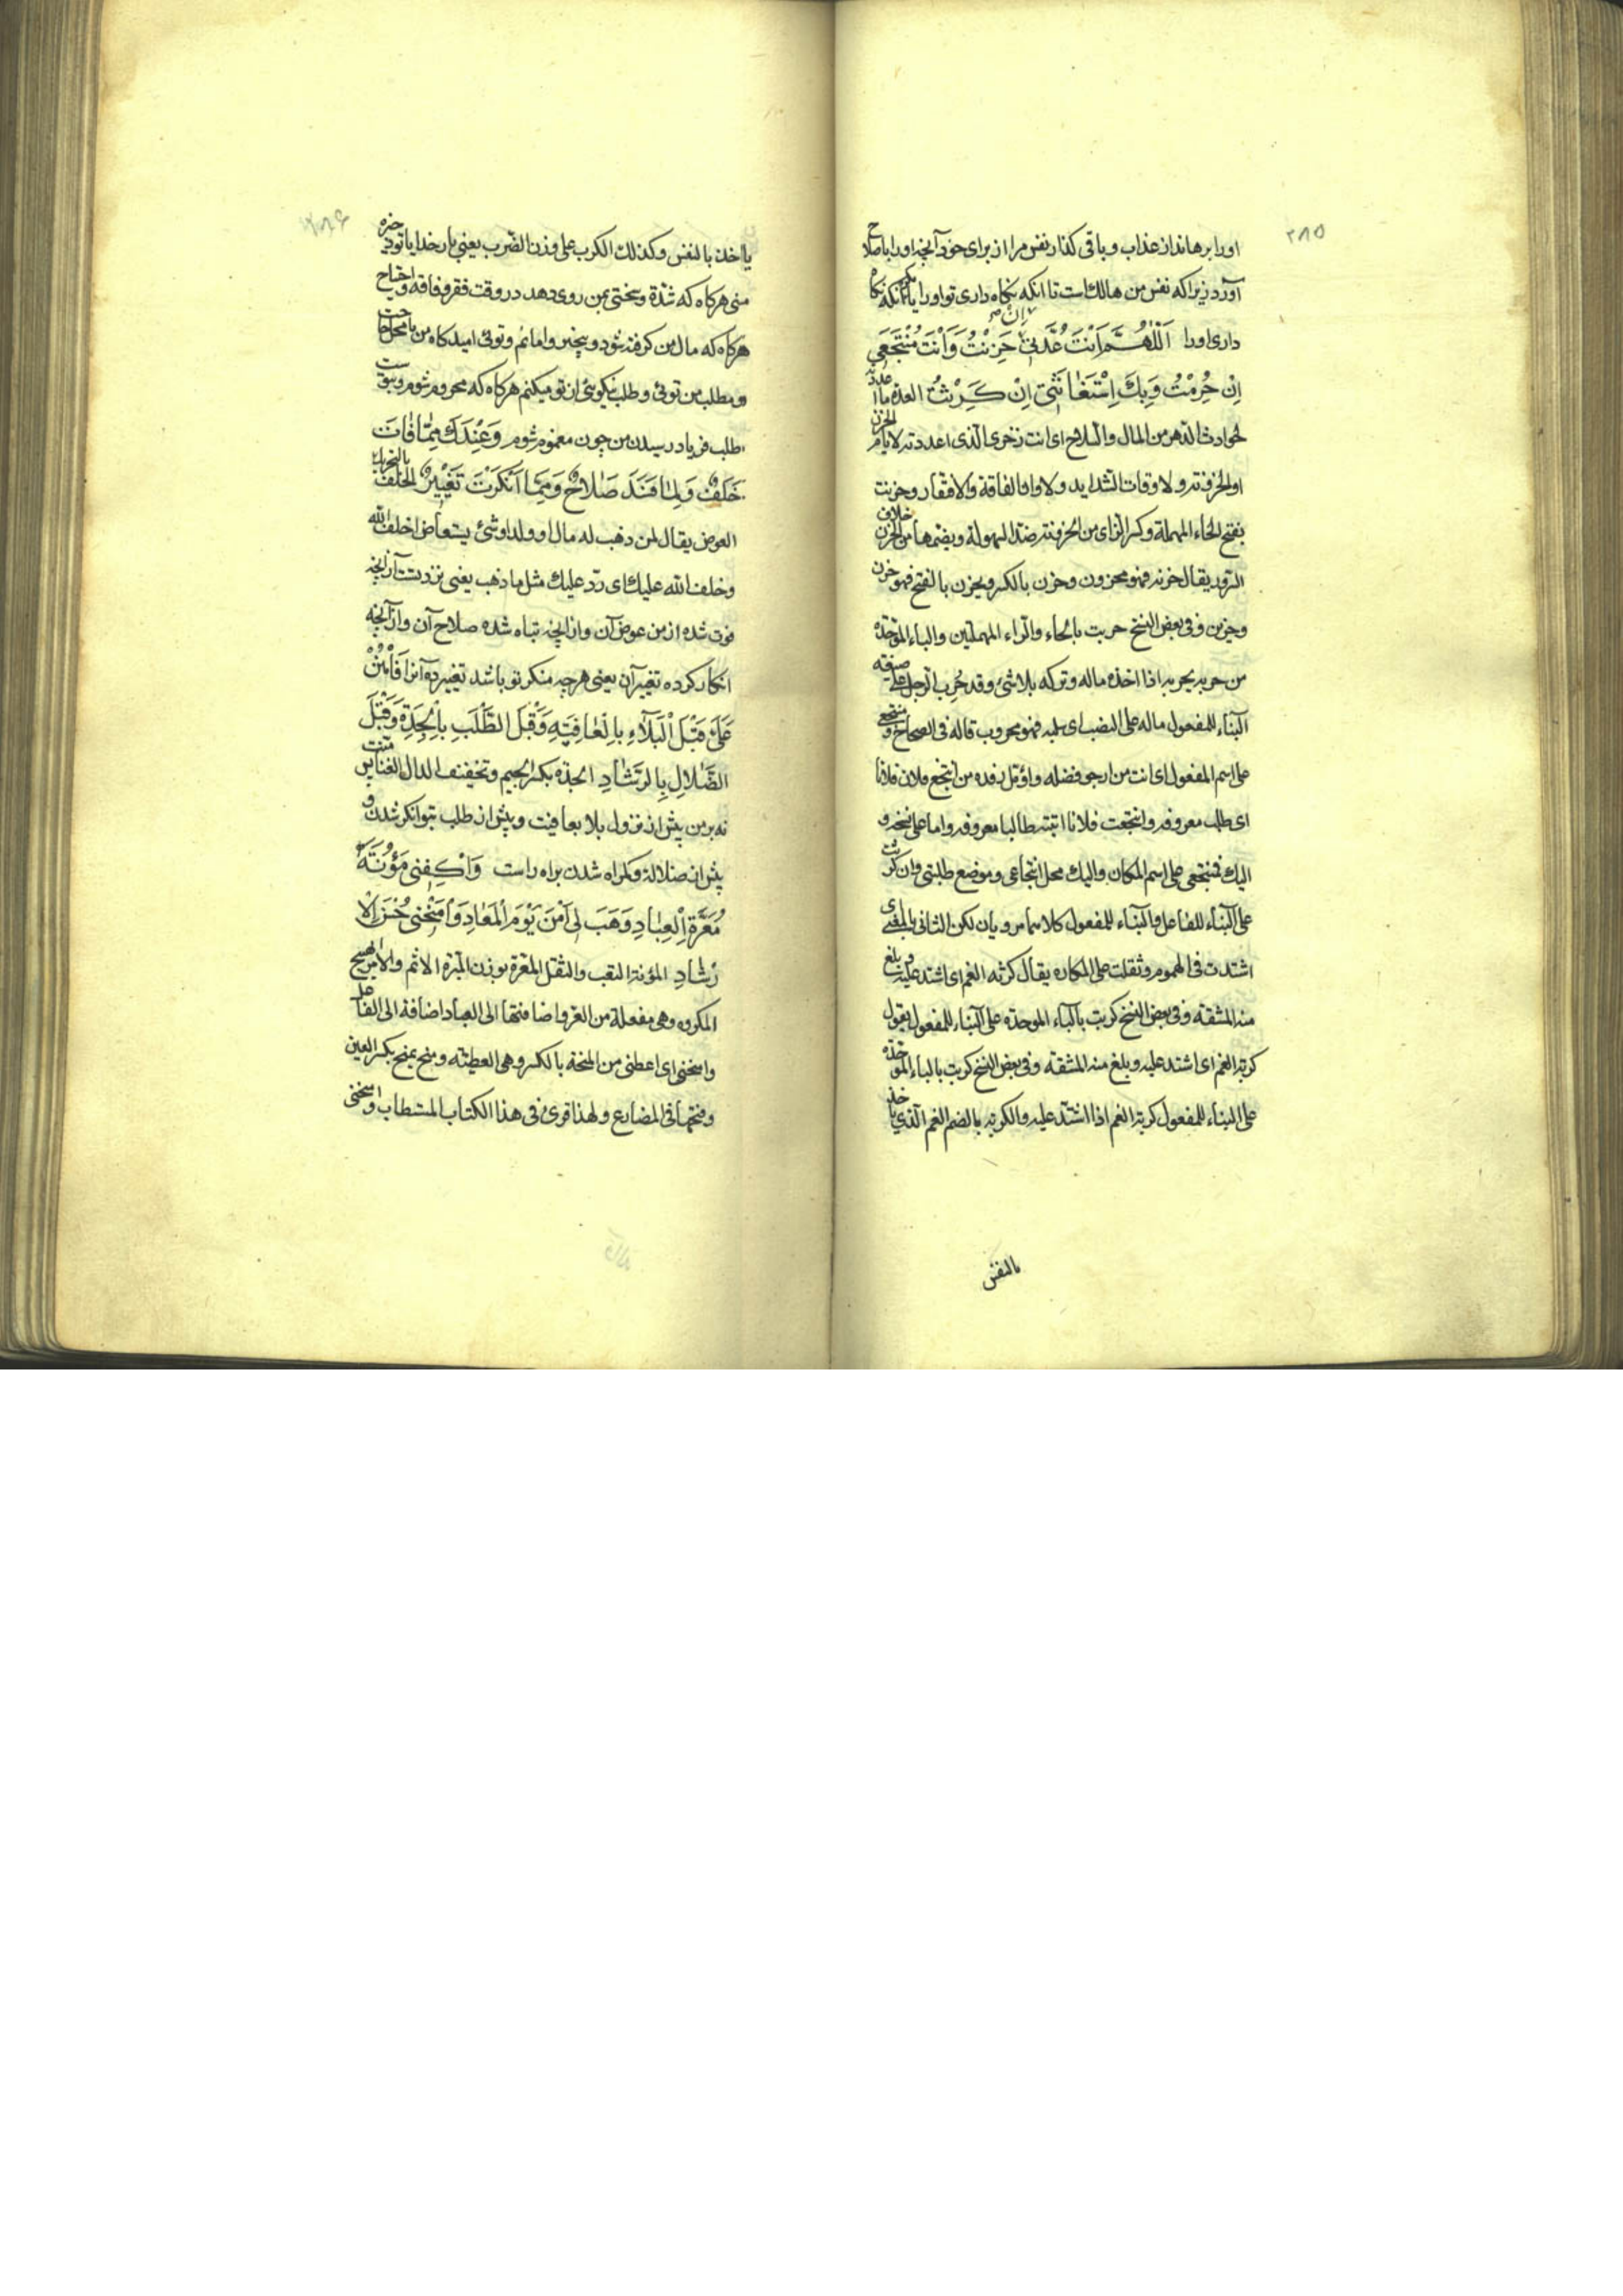 ۲۸۵
اورا برهاند از عذاب و باقی گذار نفس مرا از برای خود آنچه اورا باصلاح
آورد زیرا که نفس من هالك است تا آنکه نگاه داری تو اورا یا مگر آنکه نگاه
داری اورا اَللّٰهُمَّ اَنْتَ عُدَّتِي اِنْ حَزِنْتُ وَاَنْتَ مُنْتَجَعِي
اِنْ حُرِمْتُ وَبِكَ اِسْتَغَاثَتِي اِنْ كَرِثْتُ العدة ما اعددته
لحوادث الدهر من المال والسلاح ای انت ذخری الذی اعددته لایام الحزن
او الحزونة ولاوقات الشداید ولاوان الفاقة والافتقار وحزنت
بفتح الحاء المهملة وکسر الزای من الحزونة ضد السهولة وبضمها من الحزن خلاف
السرور یقال حزنه فهو محزون وحزن بالکسر ویحزن بالفتح فهو حزن
وحزین وفی بعض النسخ حربت بالحاء والراء المهملتین والباء الموحدة
من حربه یحربه اذا اخذ ماله وترکه بلا شیء وقد حُرِب الرجل علی صیغة
البناء للمفعول ماله علی النصب ای سلبه فهو محروب قاله فی الصحاح ومنتجعی
علی اسم المفعول ای انت من ارجو فضله واؤمّل رفده من انتجع فلان فلانا
ای طلب معروفه وانتجعت فلانا اتیته طالبا معروفه واما علی نسخة و
الیك فمنتجعی علی اسم المکان والیك محل انتجاعی وموضع طلبتی وان کرثت
علی البناء للفاعل والبناء للمفعول کلاهما مرویان لکن الثانی بالمعنی ای
اشتدت فی الهموم وثقلت علی المکاره یقال کرثه الغم ای اشتد علیه وبلغ
منه المشقة وفی بعض النسخ کربت بالباء الموحدة علی البناء للمفعول یقول
کربه الغم ای اشتد علیه وبلغ منه المشقة وفی بعض النسخ کربت بالباء الموحدة
علی البناء للمفعول کربه الغم اذا اشتد علیه والکربة بالضم الغم الذی یاخذ
بالنفس
یاخذ بالنفس وکذلك الکرب علی وزن الضرب یعنی بار خدایا تو ذخیره
منی هرکاه که شدة وسختی بمن روی دهد در وقت فقر وفاقه واحتیاج
هرکاه که مال من کرفته شود و بیچیز وامانم وتوئی امیدکاه من یا محل حاجت
ومطلب من توئی وطلب نیکوئی از تو میکنم هرکاه که محروم شوم وبتوست
طلب فریاد رسیدن من چون مغموم شوم وَعِنْدَكَ مِمَّا فَاتَ
خَلَفٌ وَلِمَا فَسَدَ صَلَاحٌ وَمِمَّا اَنْكَرْتَ تَغْيِيرٌ الخلف بالتحریك
العوض یقال لمن ذهب له مال او ولد او شیء یستعاض اخلف الله
وخلف الله علیك ای رد علیك مثل ما ذهب یعنی نزد تست از آنچه
فوت شده از من عوض آن واز آنچه تباه شده صلاح آن واز آنچه
انکار کرده تغییر آن یعنی هرچه منکر تو باشد تغییر ده آنرا فَامْنُنْ
عَلَيَّ قَبْلَ الْبَلَاءِ بِالْعَافِيَةِ وَقَبْلَ الطَّلَبِ بِالْجِدَةِ وَقَبْلَ
الضَّلَالِ بِالرَّشَادِ الجدة بکسر الجیم وتخفیف الدال الغنا پس منت
نه بر من پیش از نزول بلا بعافیت وپیش از طلب بتوانکر شدن و
پیش از ضلالة وکمراه شدن براه راست وَاكْفِنِي مَؤُنَةَ
مَعَرَّةِ الْعِبَادِ وَهَبْ لِي اَمْنَ يَوْمِ الْمَعَادِ وَامْنَحْنِي حُسْنَ الْاِ
رْشَادِ المؤنة التعب والثقل المعرة بوزن المبرة الاثم والامر القبیح
المکروه وهی مفعلة من العر واضافتها الی العباد اضافة الی الفاعل
وامنحنی ای اعطنی من المنحة بالکسر وهی العطیة ومنح یمنح بکسر العین
وفتحها فی المضارع ولهذا قرئ فی هذا الکتاب المستطاب وامنحنی